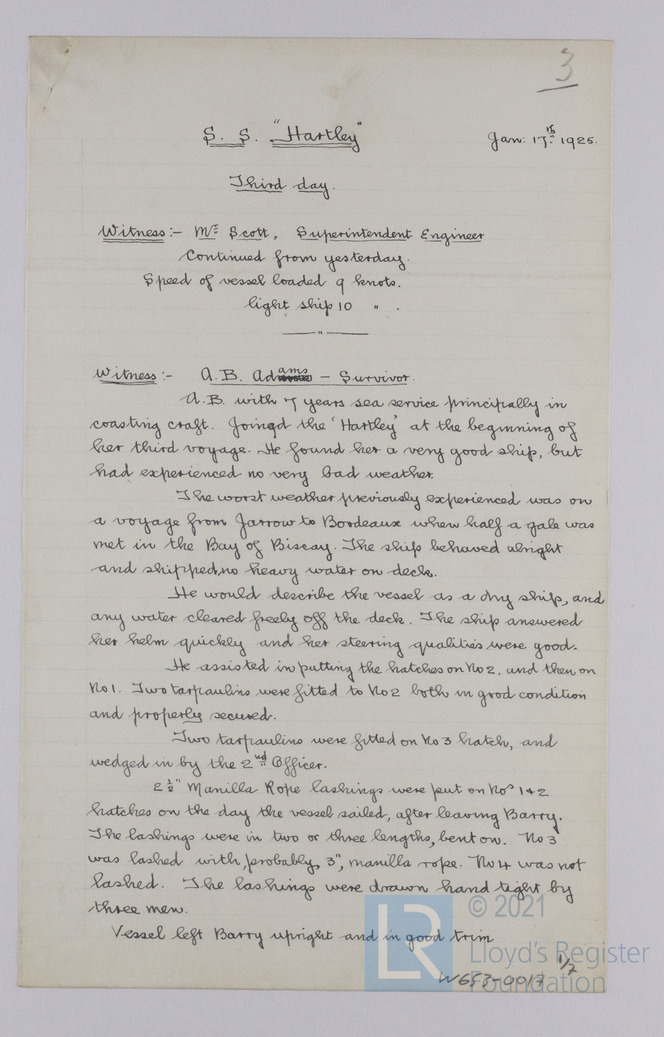 3
S. S. "Hartley"
Jan: 17th 1925.
Third day.
Witness:- Mr Scott, Superintendent Engineer
Continued from yesterday.
Speed of vessel loaded 9 knots.
light ship 10 " .
— " —
Witness:- A.B. Adams - Survivor.
A.B. with 7 years sea service principally in
coasting craft. Joined the 'Hartley' at the beginning of
her third voyage. He found her a very good ship, but
had experienced no very bad weather.
The worst weather previously experienced was on
a voyage from Jarrow to Bordeaux when half a gale was
met in the Bay of Biscay. The ship behaved alright
and shipped no heavy water on deck.
He would describe the vessel as a dry ship, and
any water cleared freely off the deck. The ship answered
her helm quickly and her steering qualities were good.
He assisted in putting the hatches on No 2, and then on
No 1. Two tarpaulins were fitted to No 2 both in good condition
and properly secured.
Two tarpaulins were fitted on No 3 hatch, and
wedged in by the 2nd Officer.
2½" Manilla Rope lashings were put on Nos 1 & 2
hatches on the day the vessel sailed, after leaving Barry.
The lashings were in two or three lengths, bent on. No 3
was lashed with, probably, 3", manilla rope. No 4 was not
lashed. The lashings were drawn hand tight by
three men.
Vessel left Barry upright and in good trim
1/7
W653-0017
LR
© 2021
Lloyd's Register
Foundation